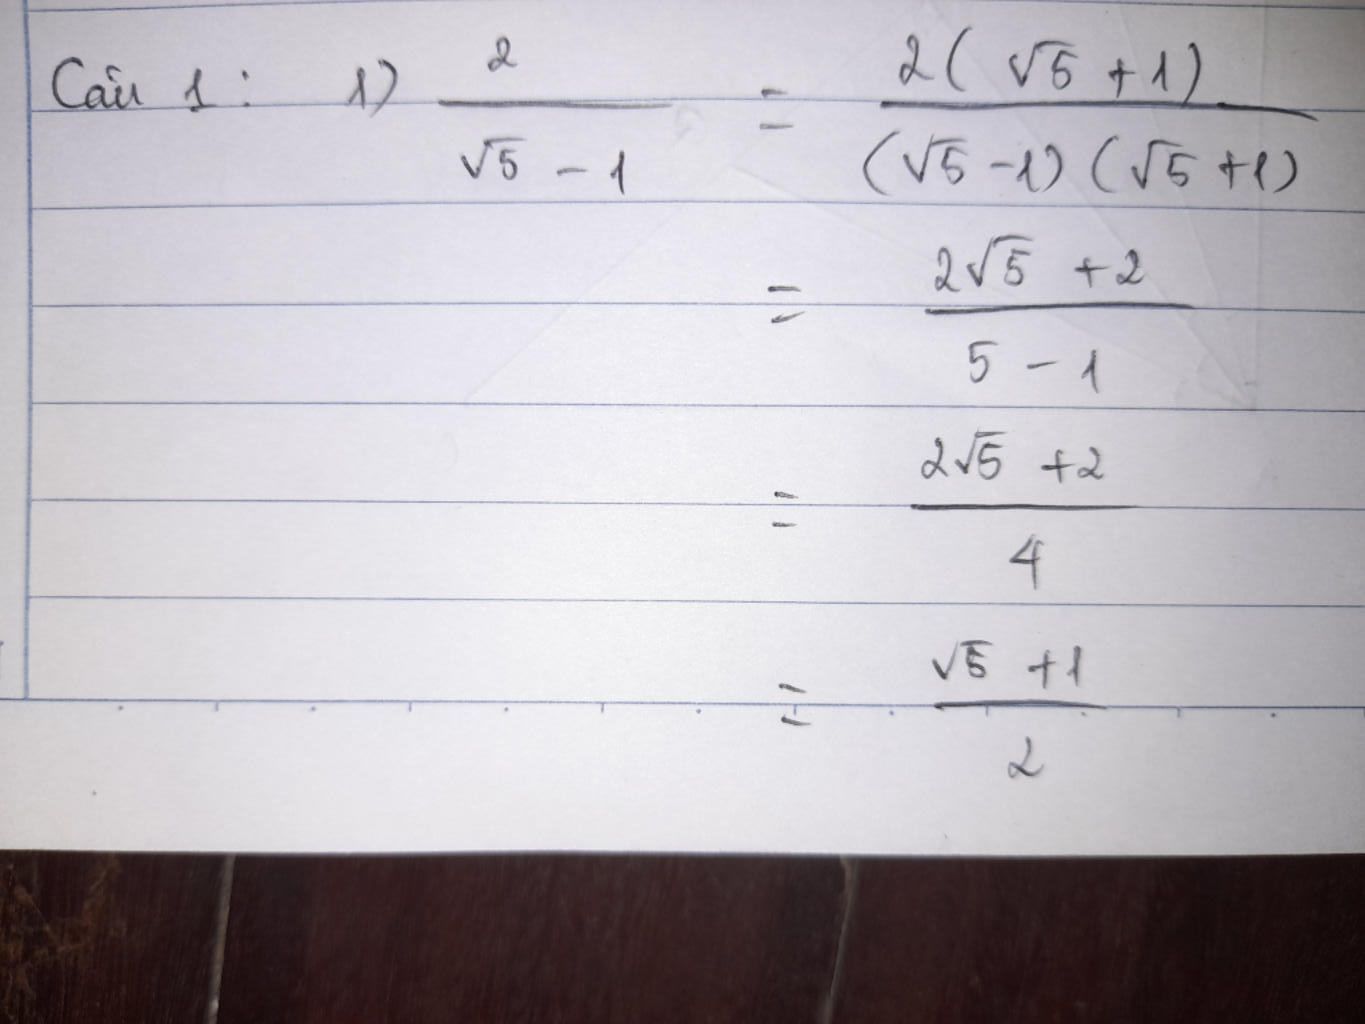 Câu 1: 1) 2/(√5 - 1) = 2(√5 + 1)/((√5 - 1)(√5 + 1))
= (2√5 + 2)/(5 - 1)
= (2√5 + 2)/4
= (√5 + 1)/2